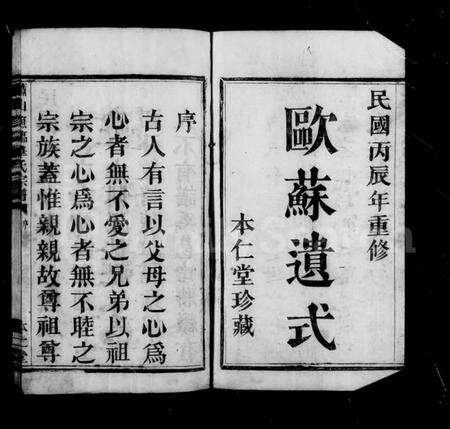 民國丙辰年重修
歐蘇遺式
本仁堂珍藏
序
古人有言以父母之心爲
心者無不愛之兄弟以祖
宗之心爲心者無不睦之
宗族蓋惟親親故尊祖尊